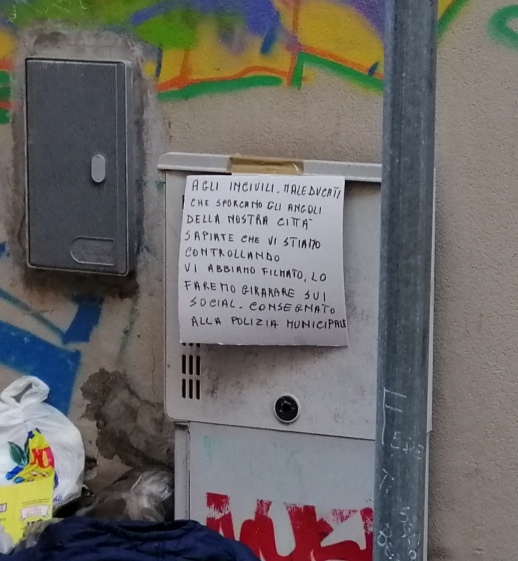 AGLI INCIVILI - MALEDUCATI
CHE SPORCANO GLI ANGOLI
DELLA NOSTRA CITTA'
SAPIATE CHE VI STIAMO
CONTROLLANDO
VI ABBIAMO FILMATO, LO
FAREMO GIRARARE SUI
SOCIAL - CONSEGNATO
ALLA POLIZIA MUNICIPALE